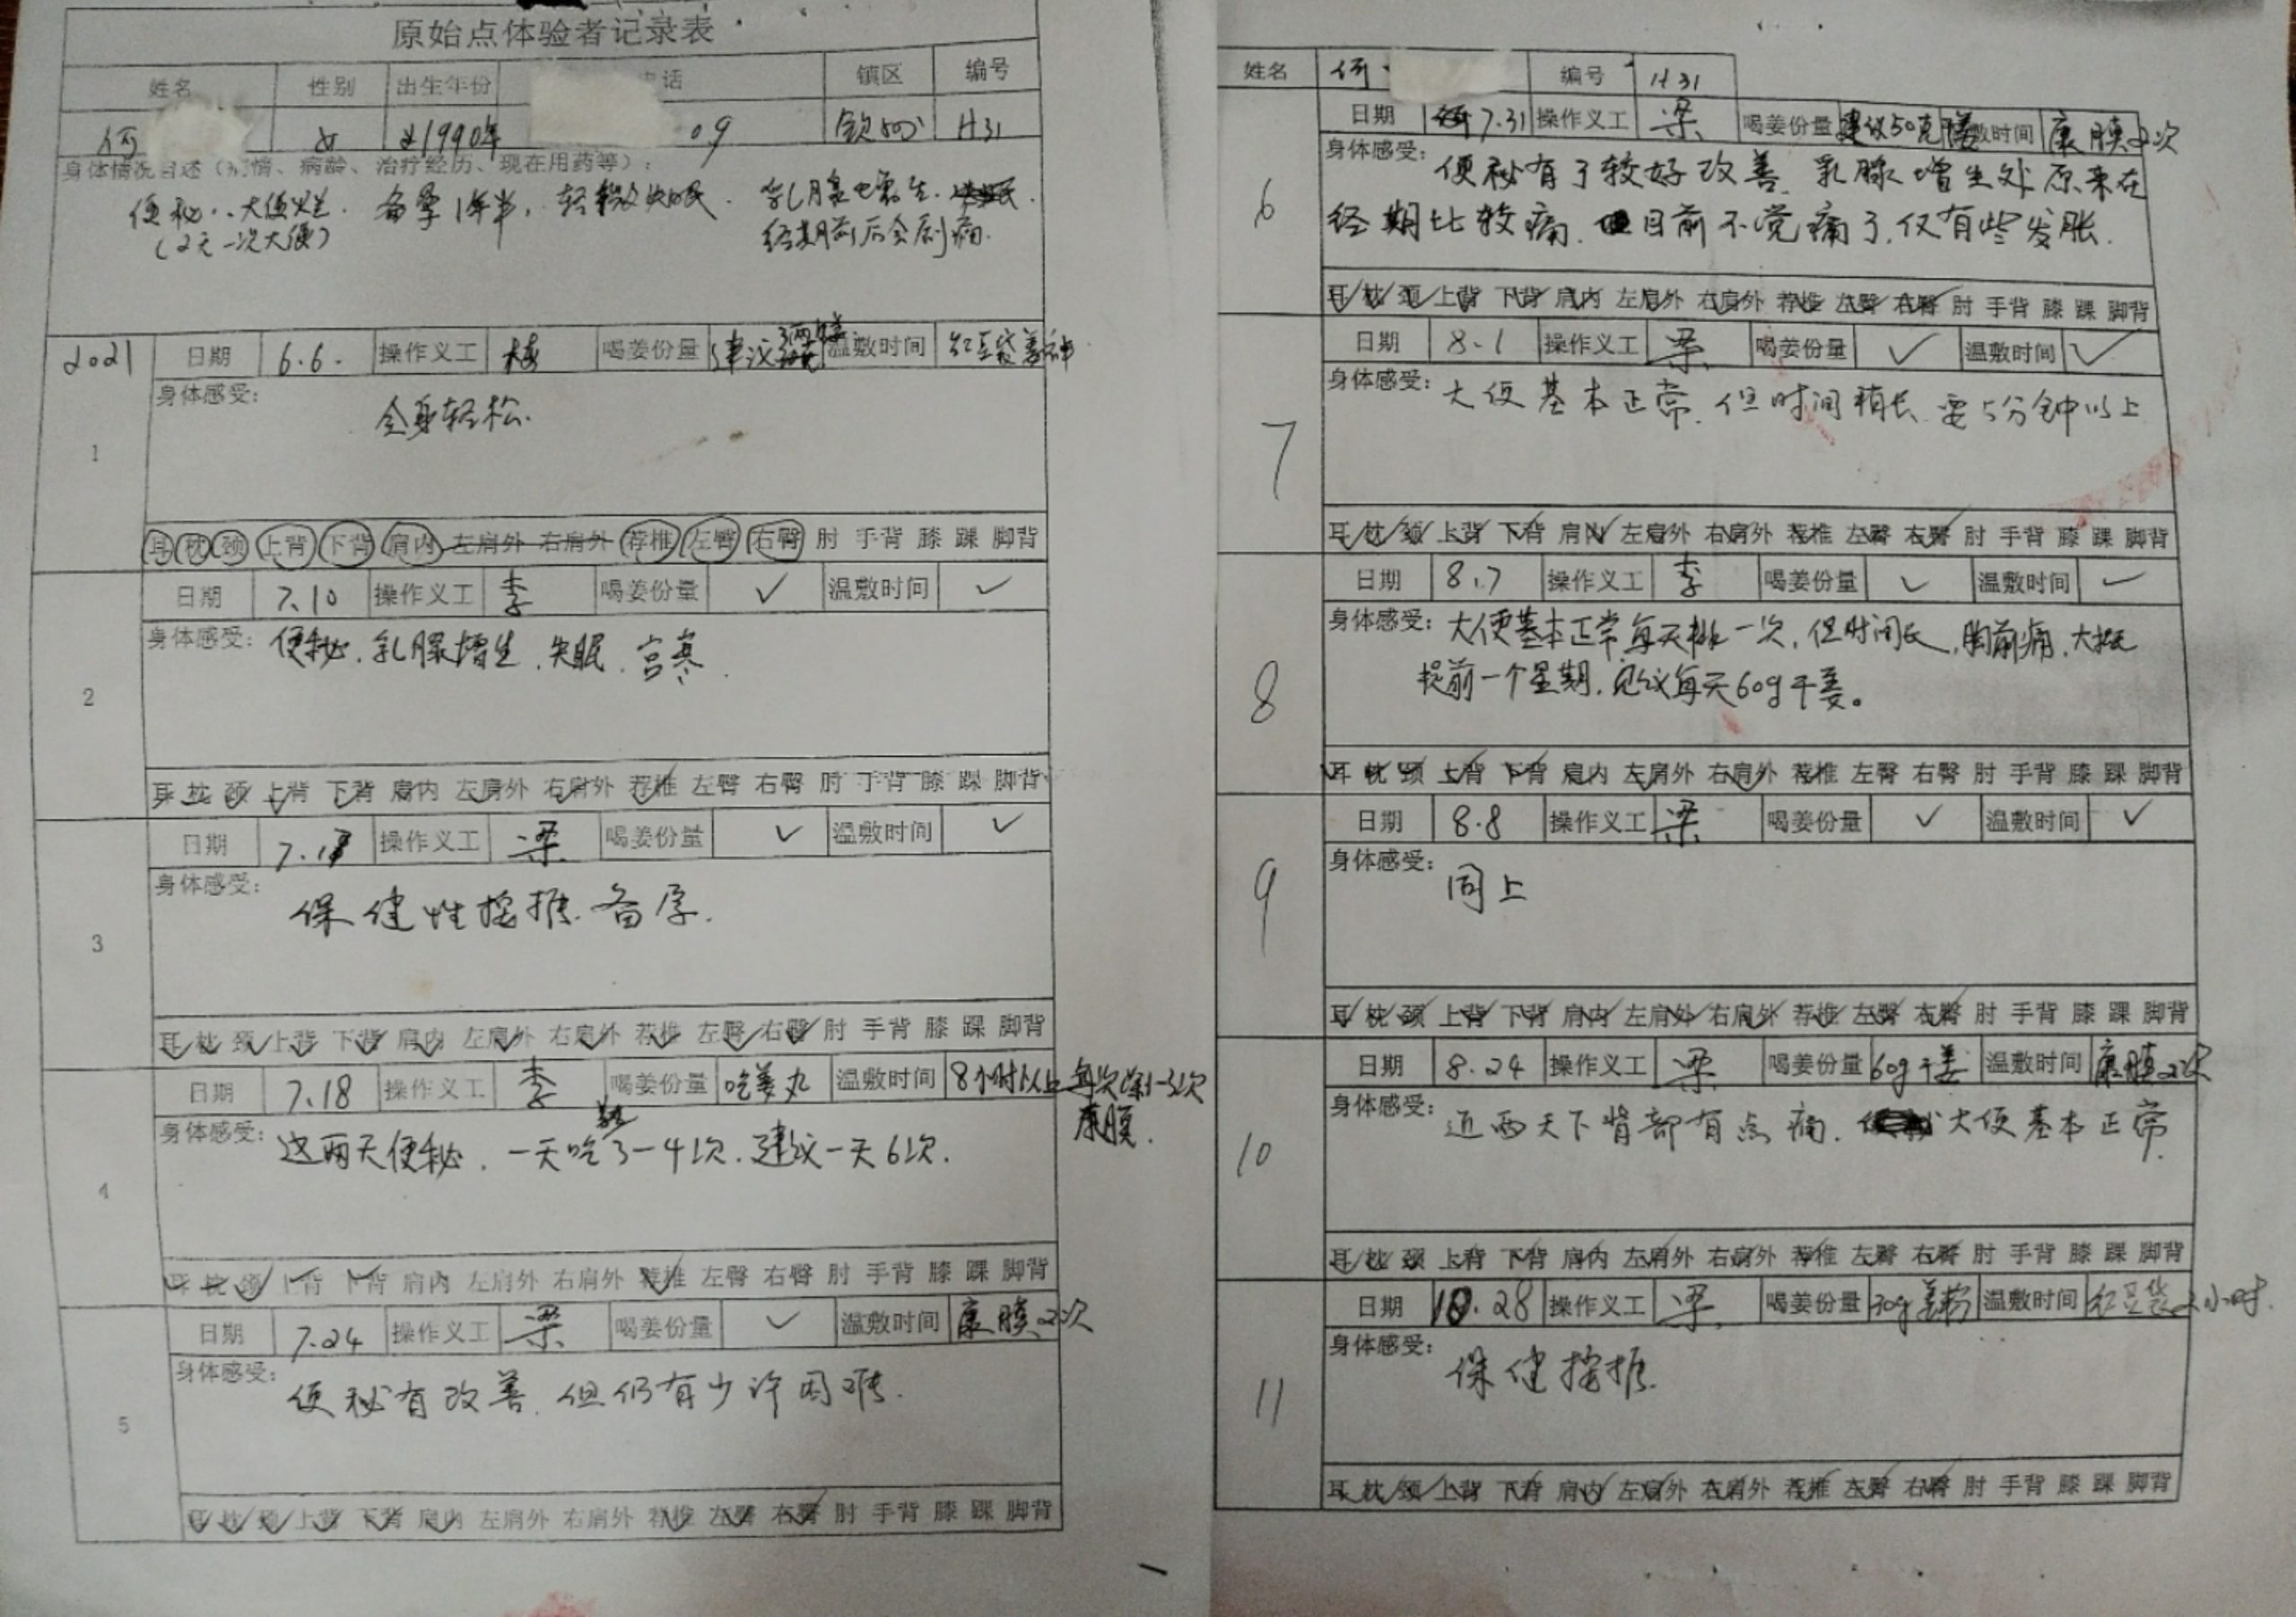 原始点体验者记录表
姓名 性别 出生年份 电话 镇区 编号
何 女 1990年 09 H31
身体情况自述（病情、病龄、治疗经历、现在用药等）：
便秘、大便烂. 备孕1年半, 轻微失眠. 乳腺增生.
（2天一次大便） 经期前后会刺痛.
2021
日期 6.6. 操作义工 梅 喝姜份量 建议 温敷时间 红豆袋
1
身体感受：
全身轻松.
耳 枕 颈 上背 下背 肩内 左肩外 右肩外 荐椎 左臀 右臀 肘 手背 膝 踝 脚背
日期 7.10 操作义工 李 喝姜份量 ✓ 温敷时间 ✓
2
身体感受： 便秘. 乳腺增生. 失眠. 宫寒.
耳 枕 颈 上背 下背 肩内 左肩外 右肩外 荐椎 左臀 右臀 肘 手背 膝 踝 脚背
日期 操作义工 梁 喝姜份量 ✓ 温敷时间 ✓
3
身体感受：
保健性按推. 备孕.
耳 枕 颈 上背 下背 肩内 左肩外 右肩外 荐椎 左臀 右臀 肘 手背 膝 踝 脚背
日期 7.18 操作义工 李 喝姜份量 吃姜丸 温敷时间 8小时以上
康膜.
4
身体感受： 这两天便秘. 一天吃3-4次. 建议一天6次.
耳 枕 颈 上背 下背 肩内 左肩外 右肩外 荐椎 左臀 右臀 肘 手背 膝 踝 脚背
日期 7.24 操作义工 梁 喝姜份量 ✓ 温敷时间 康膜2次
5
身体感受：
便秘有改善. 但仍有少许困难.
耳 枕 颈 上背 下背 肩内 左肩外 右肩外 荐椎 左臀 右臀 肘 手背 膝 踝 脚背
姓名 何 编号 H31
日期 7.31 操作义工 梁 喝姜份量 建议50克 温敷时间 康膜2次
6
身体感受： 便秘有了较好改善. 乳腺增生处原来在
经期比较痛. 目前不觉痛了. 仅有些发胀.
耳 枕 颈 上背 下背 肩内 左肩外 右肩外 荐椎 左臀 右臀 肘 手背 膝 踝 脚背
日期 8.1 操作义工 梁 喝姜份量 ✓ 温敷时间 ✓
7
身体感受： 大便基本正常. 但时间稍长. 要5分钟以上
耳 枕 颈 上背 下背 肩内 左肩外 右肩外 荐椎 左臀 右臀 肘 手背 膝 踝 脚背
日期 8.7 操作义工 李 喝姜份量 ✓ 温敷时间 ✓
8
身体感受： 大便基本正常每天排一次, 但时间长, 胸前痛. 大概
提前一个星期. 建议每天60g干姜。
耳 枕 颈 上背 下背 肩内 左肩外 右肩外 荐椎 左臀 右臀 肘 手背 膝 踝 脚背
日期 8.8 操作义工 梁 喝姜份量 ✓ 温敷时间 ✓
9
身体感受：
同上
耳 枕 颈 上背 下背 肩内 左肩外 右肩外 荐椎 左臀 右臀 肘 手背 膝 踝 脚背
日期 8.24 操作义工 梁 喝姜份量 60g干姜 温敷时间 康膜2次
10
身体感受： 近两天下背部有点痛. 大便基本正常.
耳 枕 颈 上背 下背 肩内 左肩外 右肩外 荐椎 左臀 右臀 肘 手背 膝 踝 脚背
日期 10.28 操作义工 梁 喝姜份量 30g姜粉 温敷时间 红豆袋2小时.
11
身体感受：
保健按推.
耳 枕 颈 上背 下背 肩内 左肩外 右肩外 荐椎 左臀 右臀 肘 手背 膝 踝 脚背